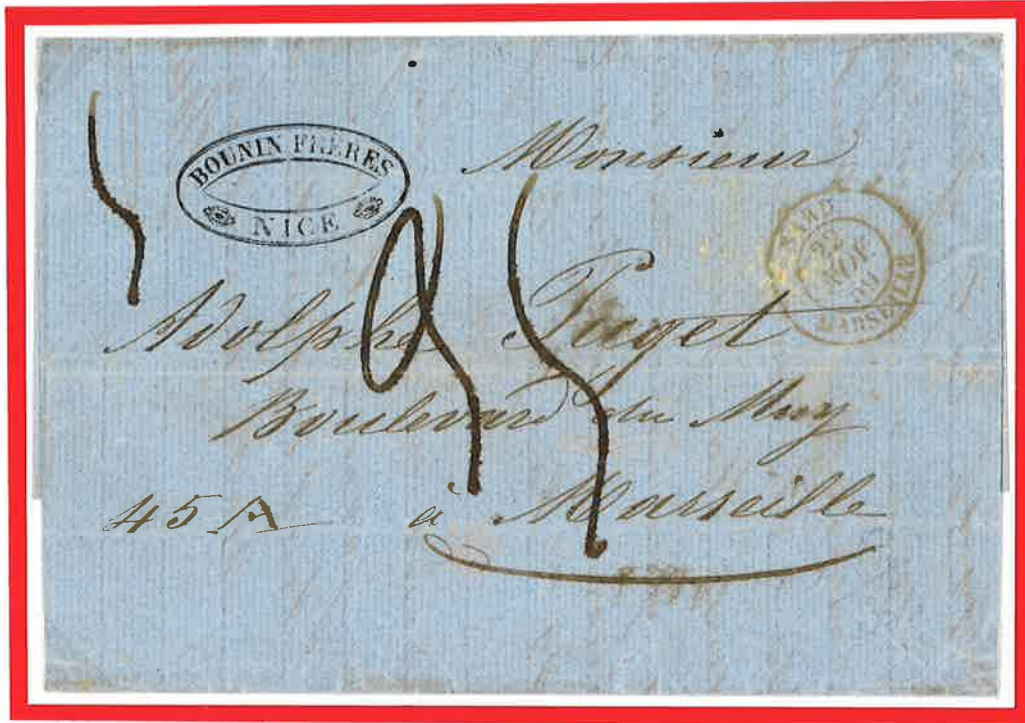 BOUNIN FRÈRES
NICE
Monsieur
22
NOV
59
MARSEILLE
Adolphe Puget
Boulevard du Muy
45 A à Marseille